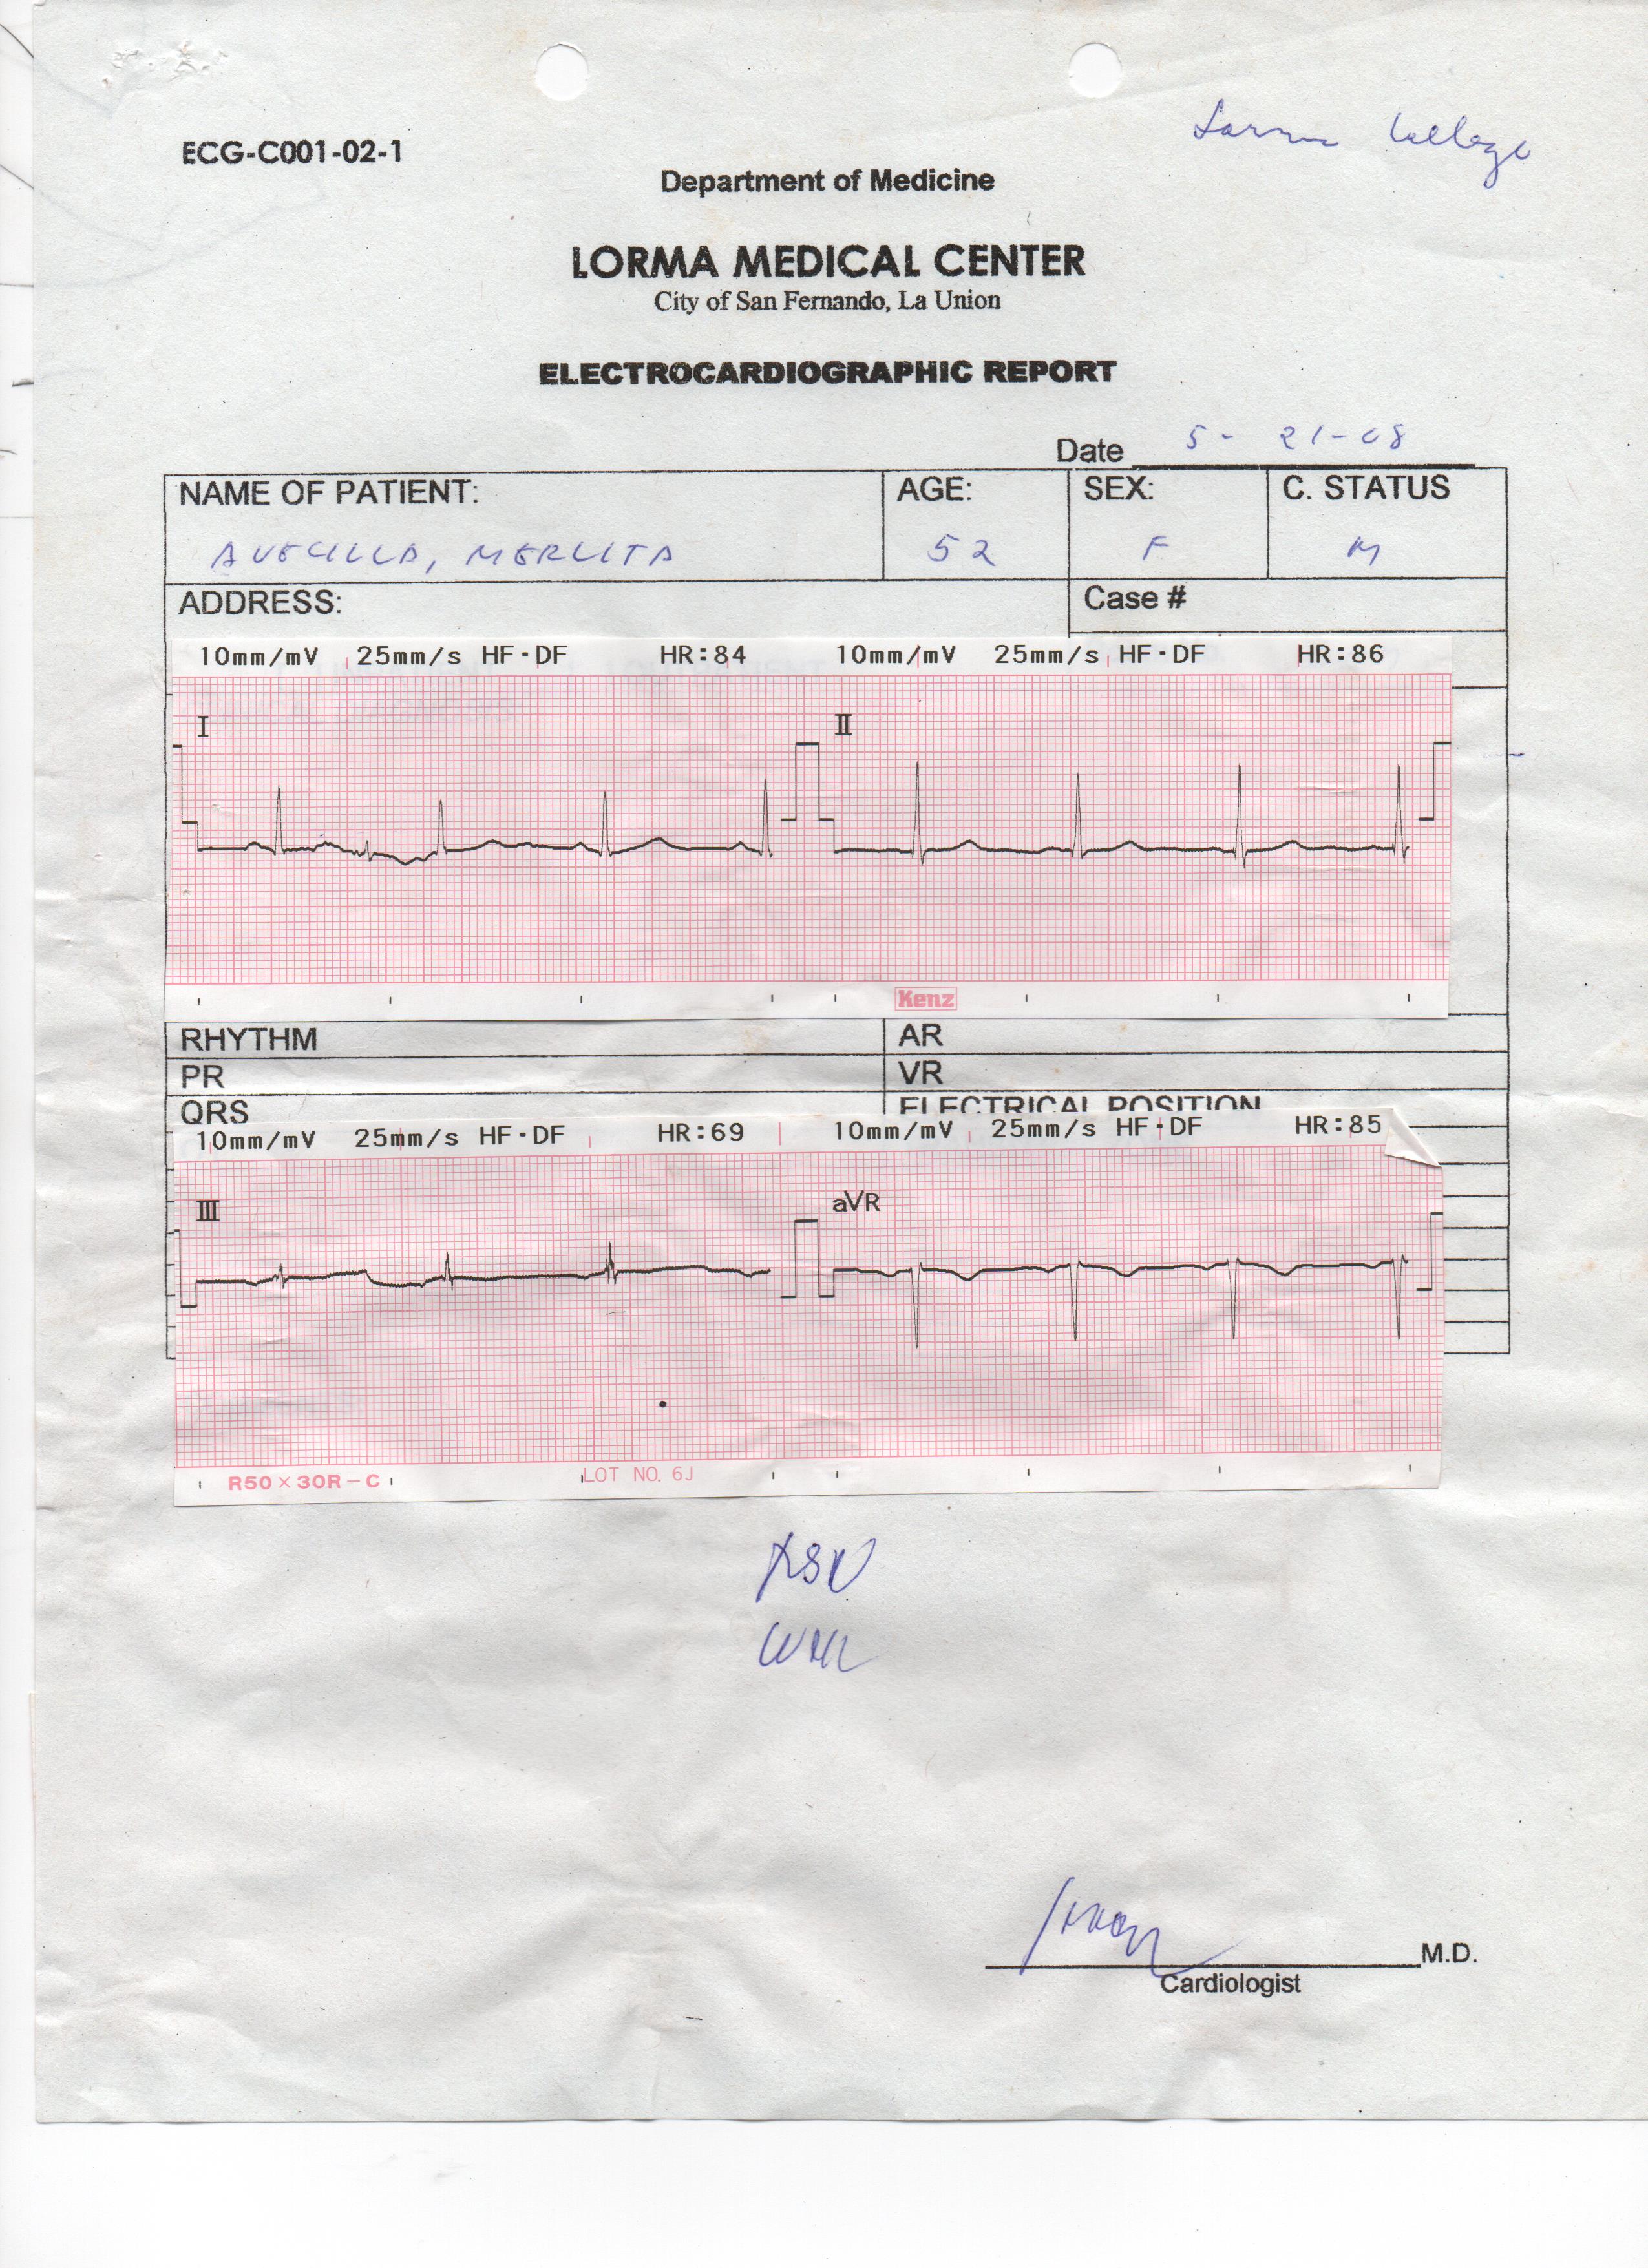 Lorma College
ECG-C001-02-1
Department of Medicine
LORMA MEDICAL CENTER
City of San Fernando, La Union
ELECTROCARDIOGRAPHIC REPORT
Date 5-21-08
NAME OF PATIENT: AGE: SEX: C. STATUS
AVECILLA, MERLITA 52 F M
ADDRESS: Case #
10mm/mV 25mm/s HF·DF HR:84 10mm/mV 25mm/s HF·DF HR:86
I II
Kenz
RHYTHM AR
PR VR
QRS ELECTRICAL POSITION
10mm/mV 25mm/s HF·DF HR:69 10mm/mV 25mm/s HF·DF HR:85
III aVR
R50×30R-C LOT NO. 6J
WNL
M.D.
Cardiologist